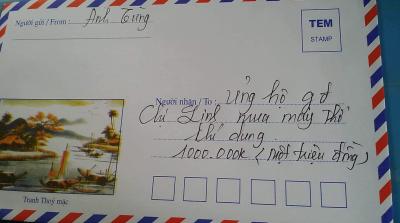 Người gửi / From : Anh Tùng
TEM
STAMP
Người nhận / To : Ủng hộ gđ
Chị Linh mua máy thở
khí dung
1000.000k (một triệu đồng)
Tranh Thuỷ mặc